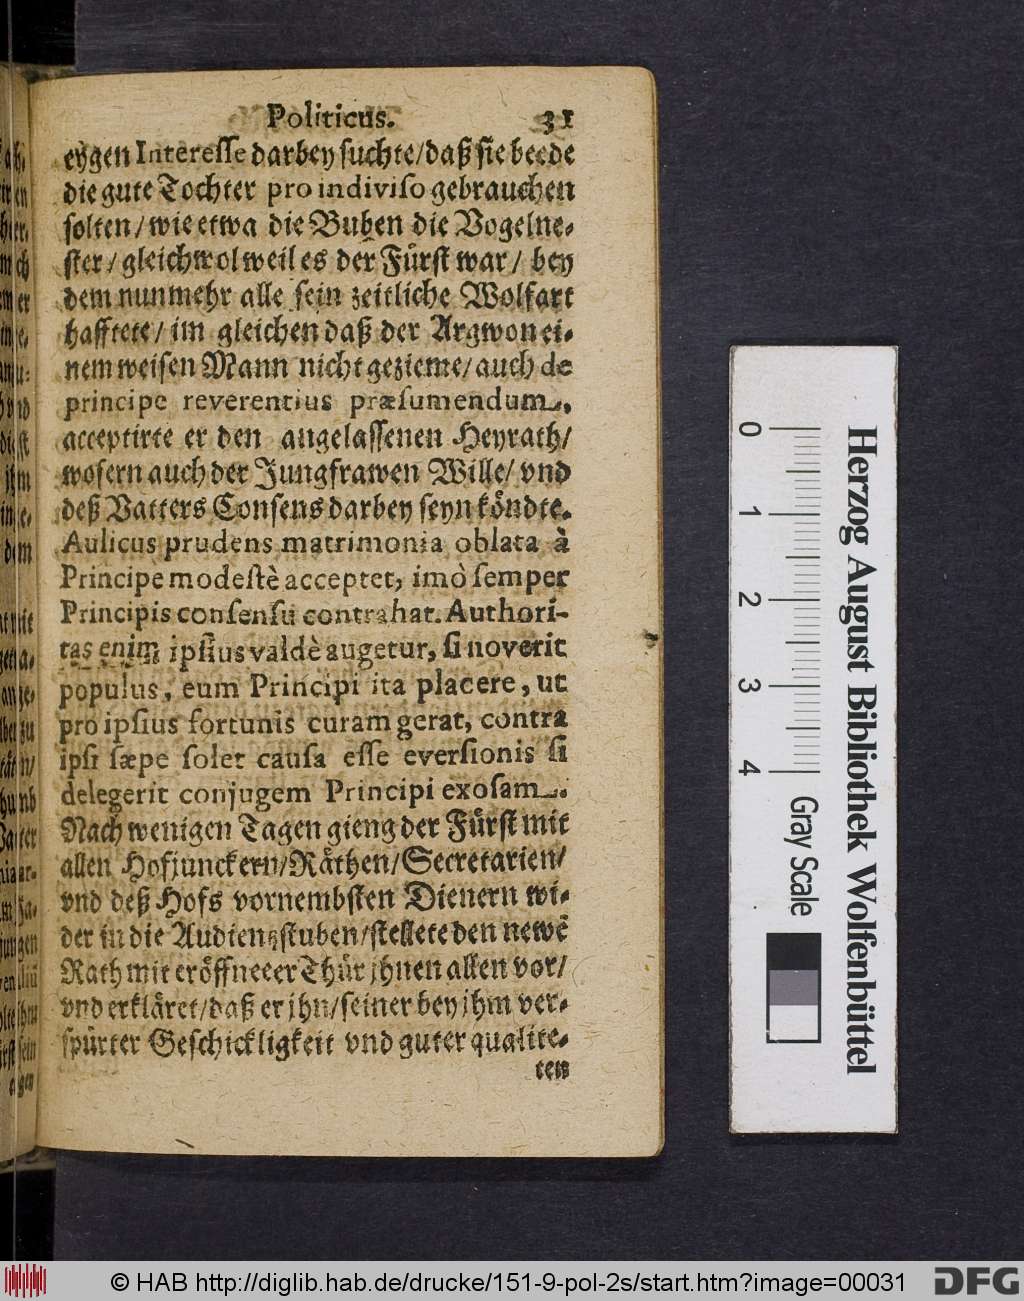 Politicus. 31
eygen Interesse darbey suchte/daß sie beede
die gute Tochter pro indiviso gebrauchen
solten/wie etwa die Buben die Vogelne-
ster/gleichwol weil es der Fürst war/ bey
dem nunmehr alle sein zeitliche Wolfart
hafftete/im gleichen daß der Argwon ei-
nem weisen Mann nicht gezieme/auch de
principe reverentius præsumendum,
acceptirte er den angelassenen Heyrath/
wofern auch der Jungfrawen Wille/ vnd
deß Vatters Consens darbey seyn köndte.
Aulicus prudens matrimonia oblata à
Principe modestè acceptet, imò semper
Principis consensu contrahat. Authori-
tas enim ipsius valdè augetur, si noverit
populus, eum Principi ita placere, ut
pro ipsius fortunis curam gerat, contra
ipsi sæpe solet causa esse eversionis si
delegerit conjugem Principi exosam.
Nach wenigen Tagen gieng der Fürst mit
allen Hofjunckern/Räthen/Secretarien/
vnd deß Hofs vornembsten Dienern wi-
der in die Audientzstuben/stellete den newẽ
Rath mit eröffneeer Thür jhnen allen vor/
vnd erkläret/daß er jhn/seiner bey jhm ver-
spürter Geschickligkeit vnd guter qualite-
ten
0 1 2 3 4
Gray Scale
Herzog August Bibliothek Wolfenbüttel
© HAB http://diglib.hab.de/drucke/151-9-pol-2s/start.htm?image=00031
DFG